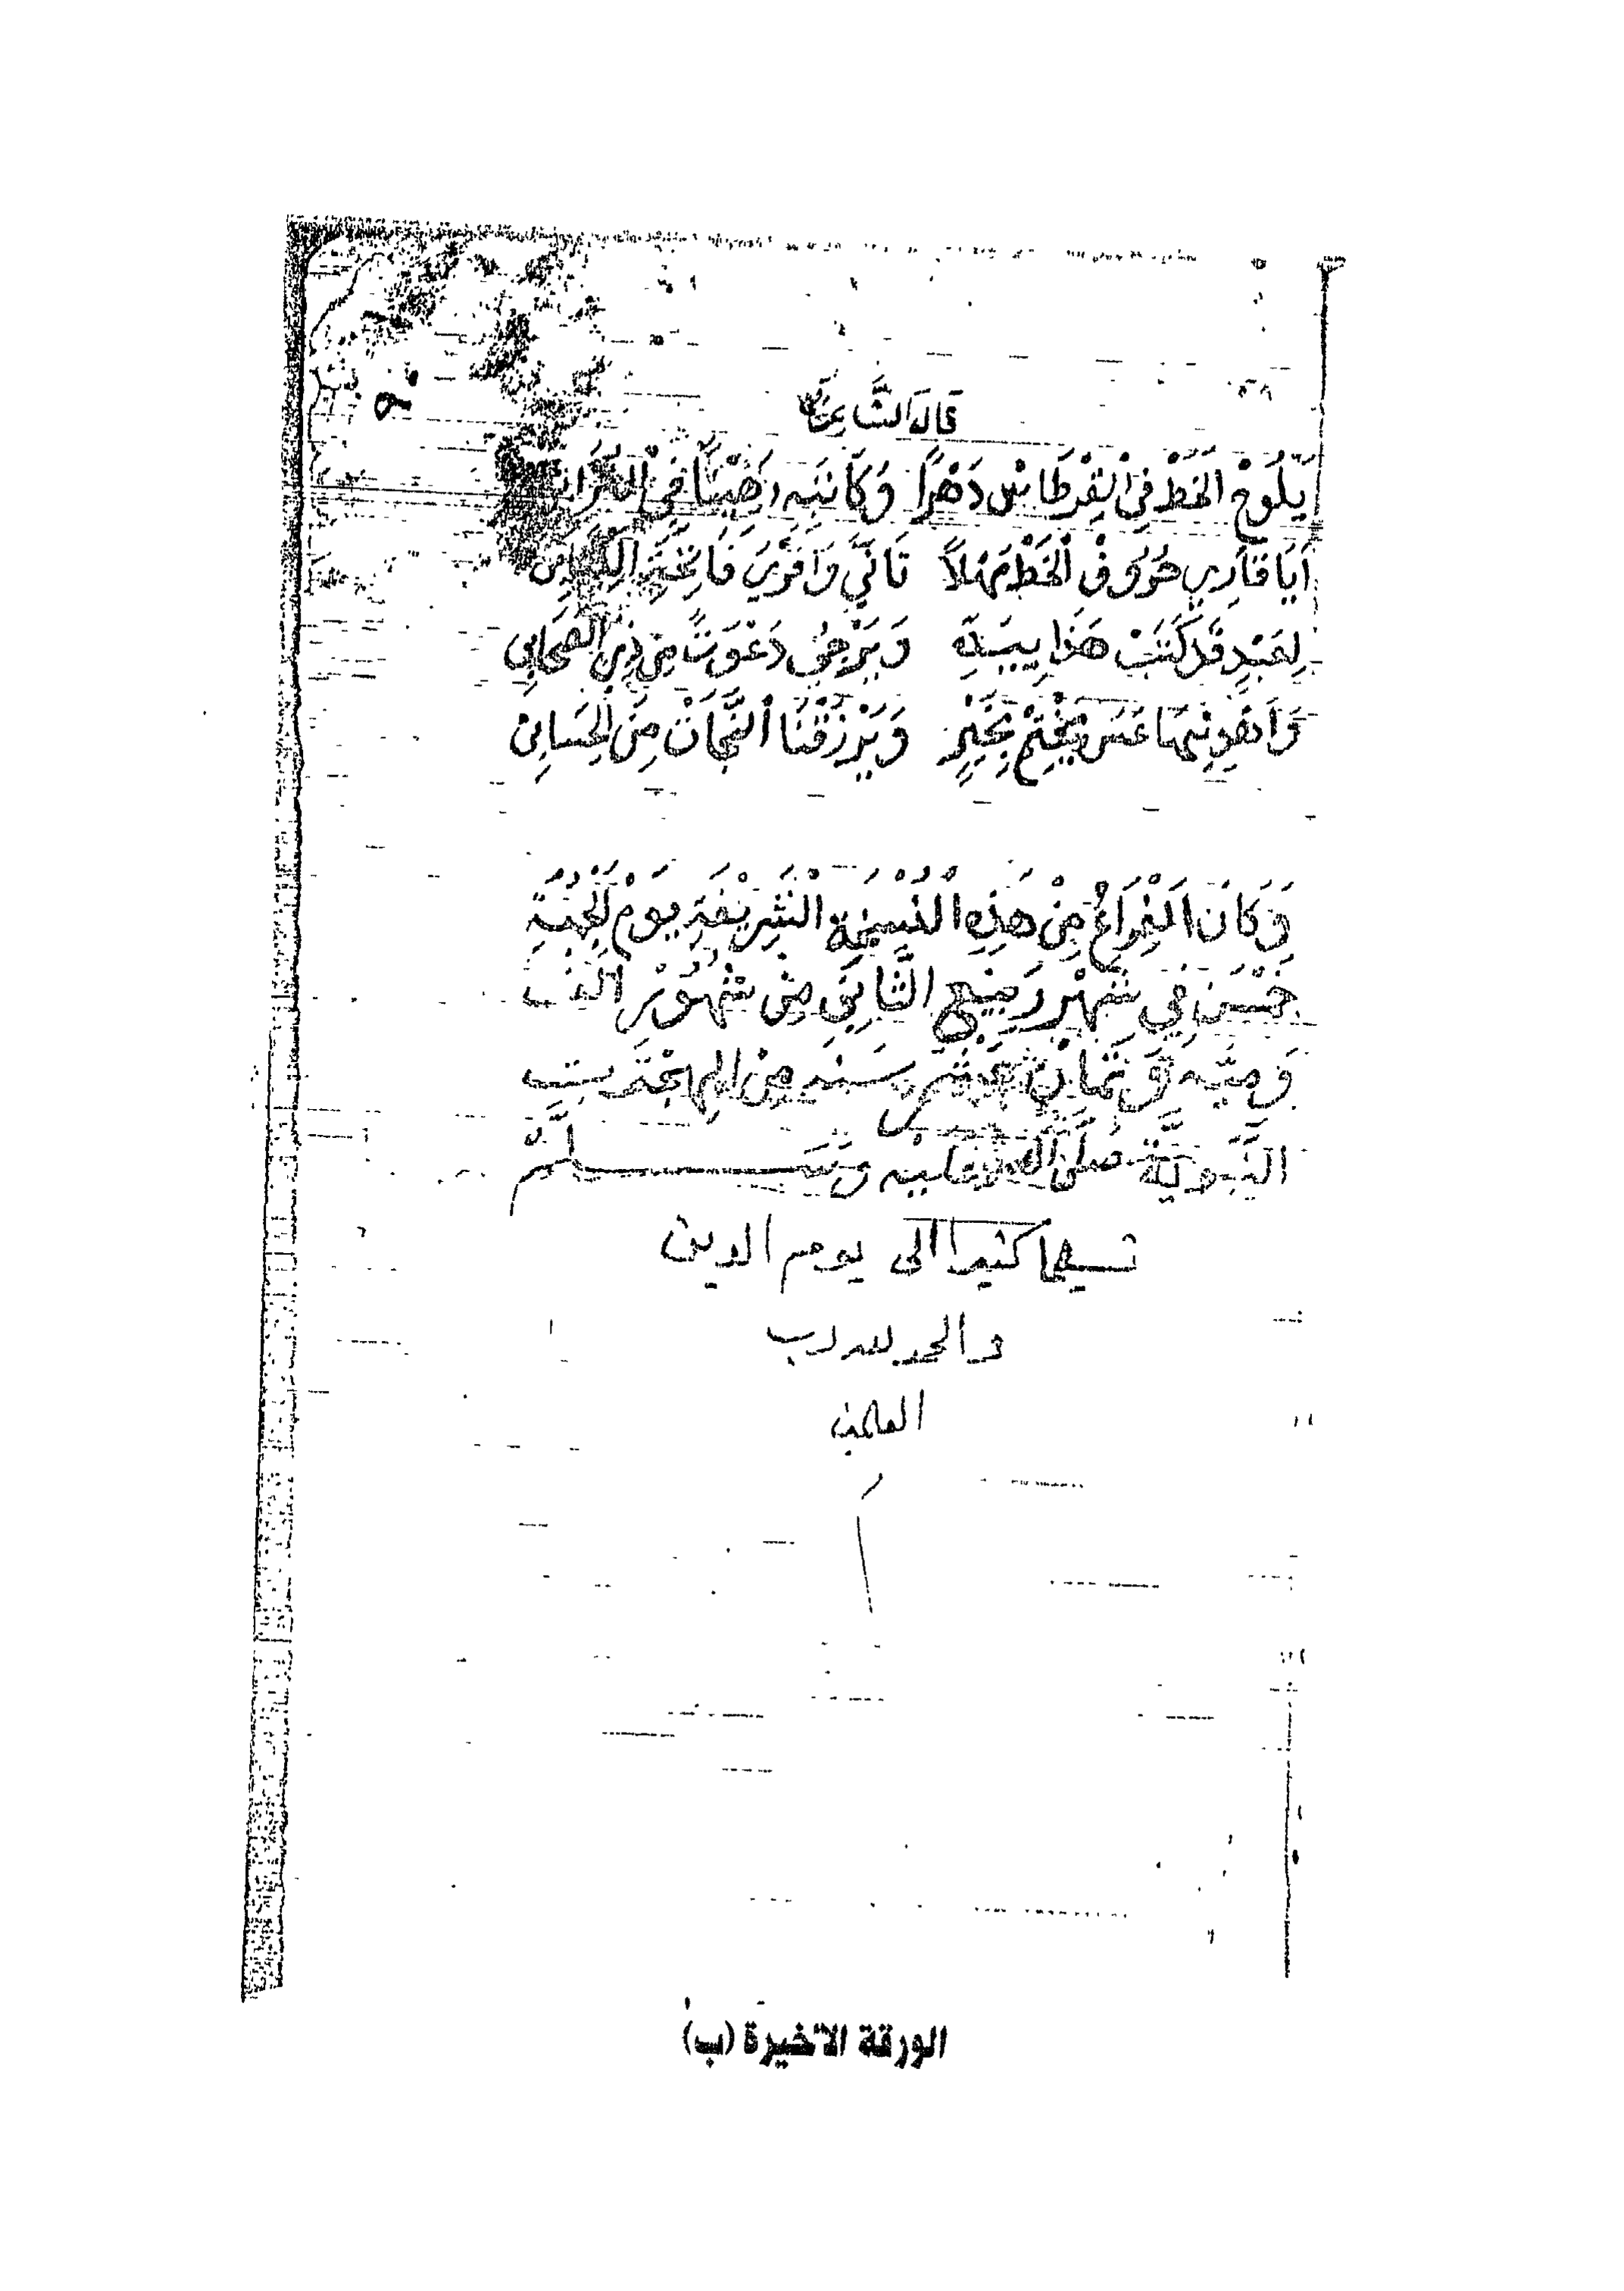 قال الشاعر
يَلُوحُ الخَطْ فِيْ القِرْطَاسْ دَهْراً وَكَاتِبَهِ رَهِيْناً فِيْ التُّرَابِ
أَيَا قَارِي حُرُوفْ الخَطْ مَهْلاً تَأَنَّي وَاقْرَيَ فَاتِحَةَ الكِتَابِ
لِعَبْدٍ قَدْ كَتَبْ هَذَا بِيَدِهِ وَيَرْجُي دَعْوَتً مِن ذِي الصحابي
عَسَى يَخْتِمْ بِخَيْرٍ وَيَرْزُقْنَا النَّجَاتْ مِنَ الحِسَابِ
وَكَانَ الفِرَاغُ مِنْ هَذِهِ النُسْخَة الْشَرِيْفَةِ يَوْمْ
فِي شَهْرِ رَبِيْعِ الثَّانِي مِنْ شُهُوْرِ الف
وَمِيَّه وَثَمَانْ عَشَر سَنه مِنْ الهِجْرَتِ
النَّبَوِيَّة صَلَّى الله عَليه وَسَلَّم
تسليما كثيرا الى يوم الدين
والحمد لله رب
العالمين
الورقة الأخيرة (ب)